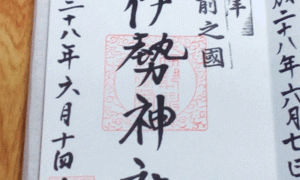 二十八年六月七日
前之國
伊勢神
二十八年六月十四